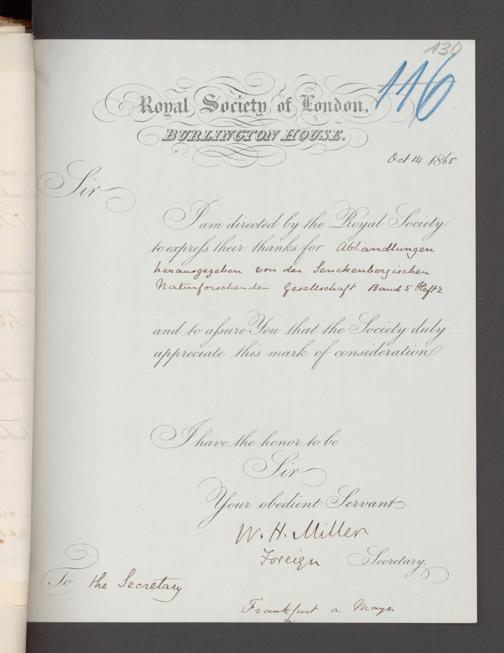 130
116
Royal Society of London,
BURLINGTON HOUSE.
Oct 14 1865
Sir
I am directed by the Royal Society
to express their thanks for Abhandlungen
herausgegeben von der Senckenbergischen
Naturforschenden Gesellschaft Band 5 Heft 2
and to assure You that the Society duly
appreciate this mark of consideration
I have the honor to be
Sir
Your obedient Servant
W. H. Miller
Foreign Secretary.
To the Secretary
Frankfurt a Mayn